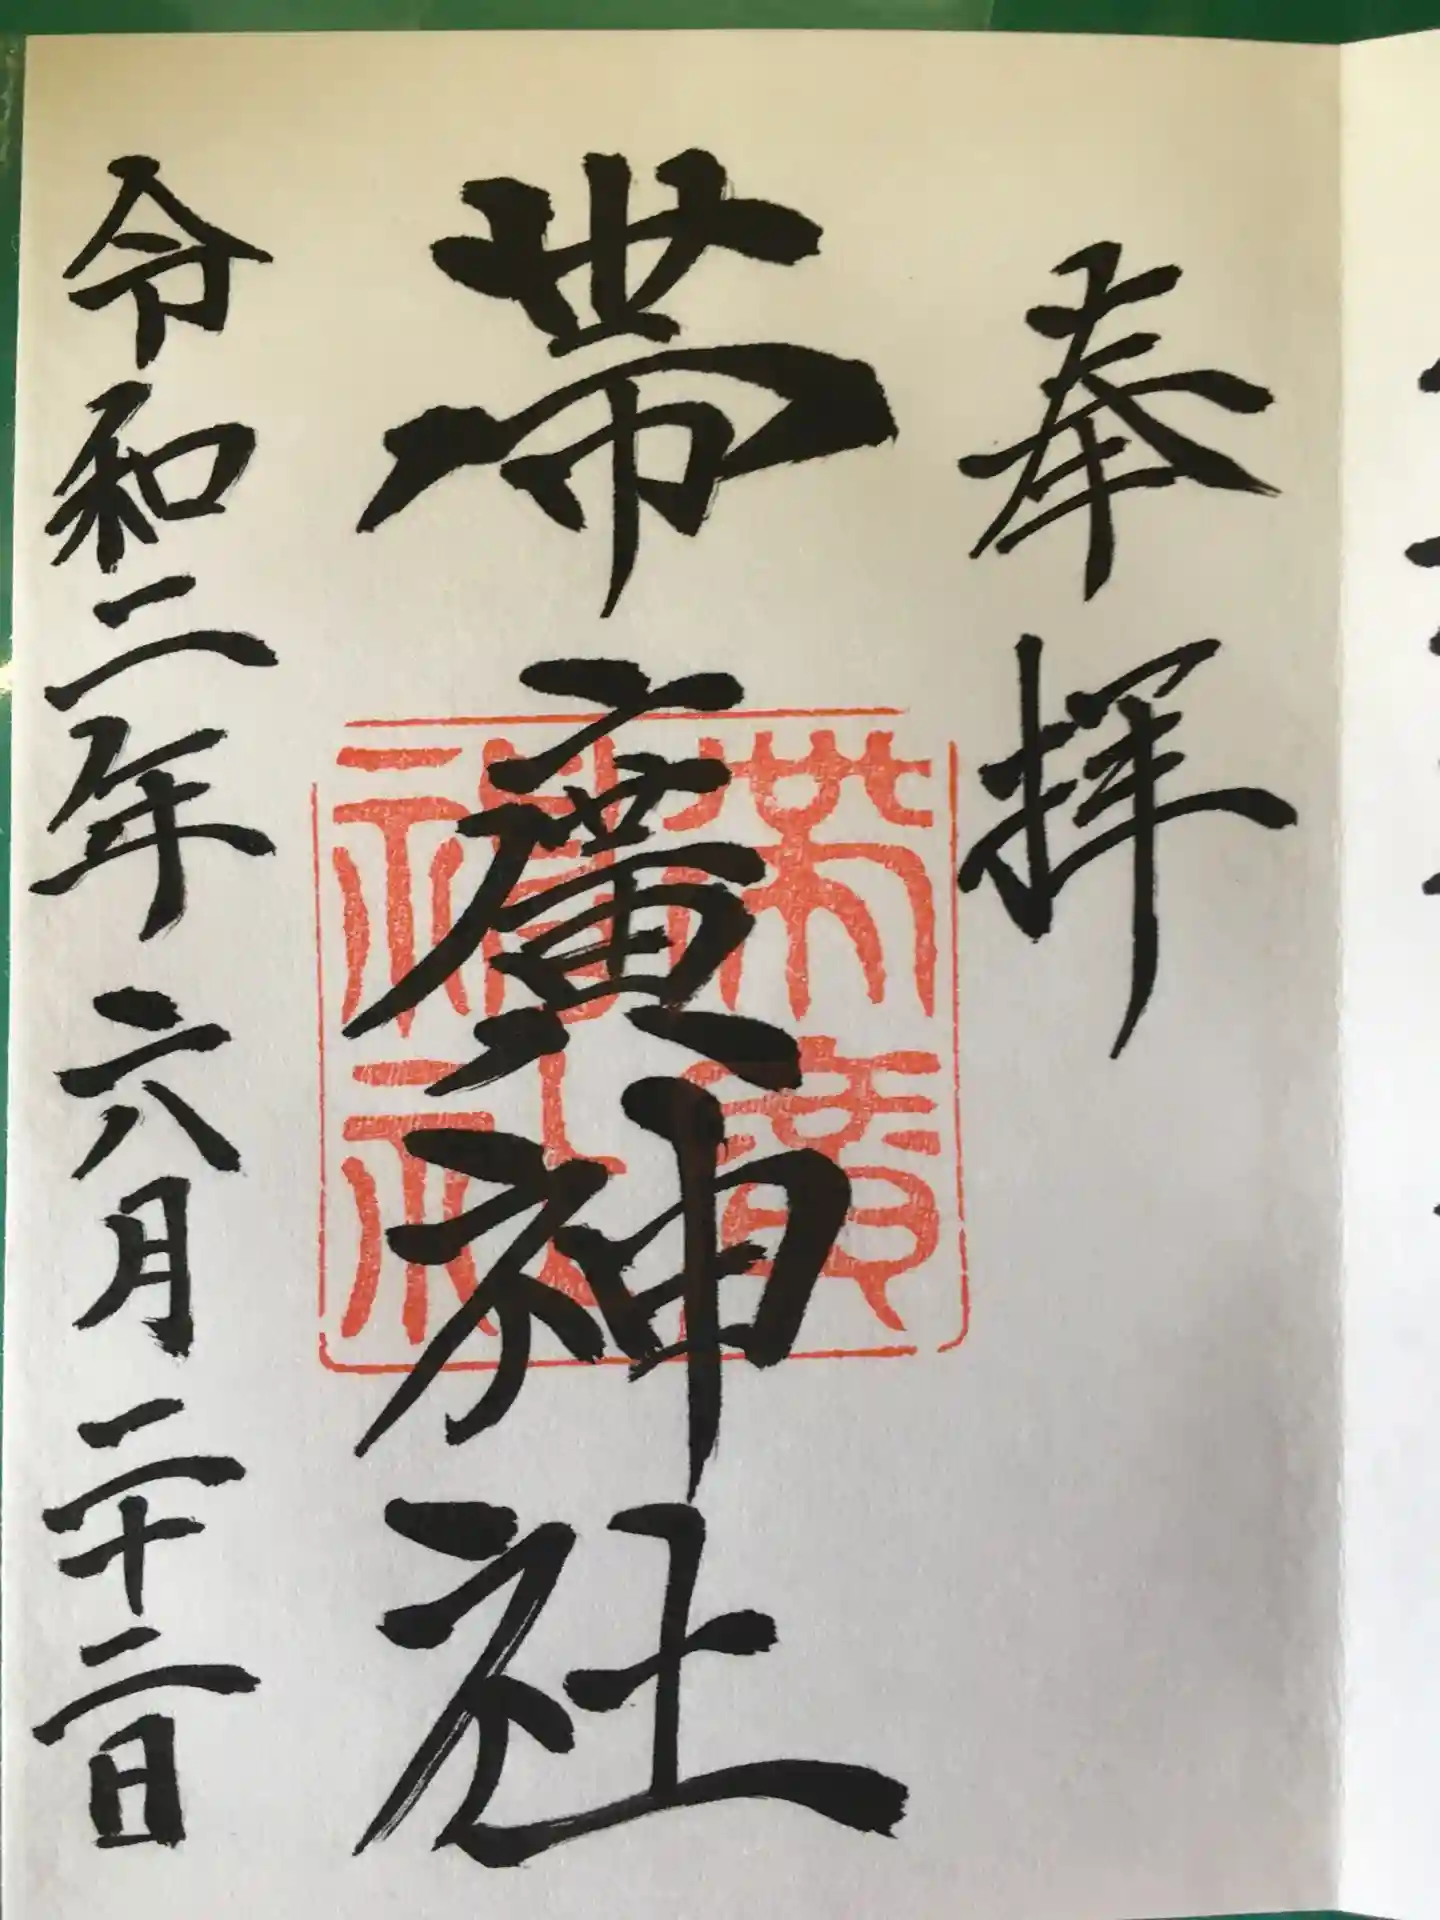 奉拝
帯廣神社
帯廣
神社
令和二年六月二十二日